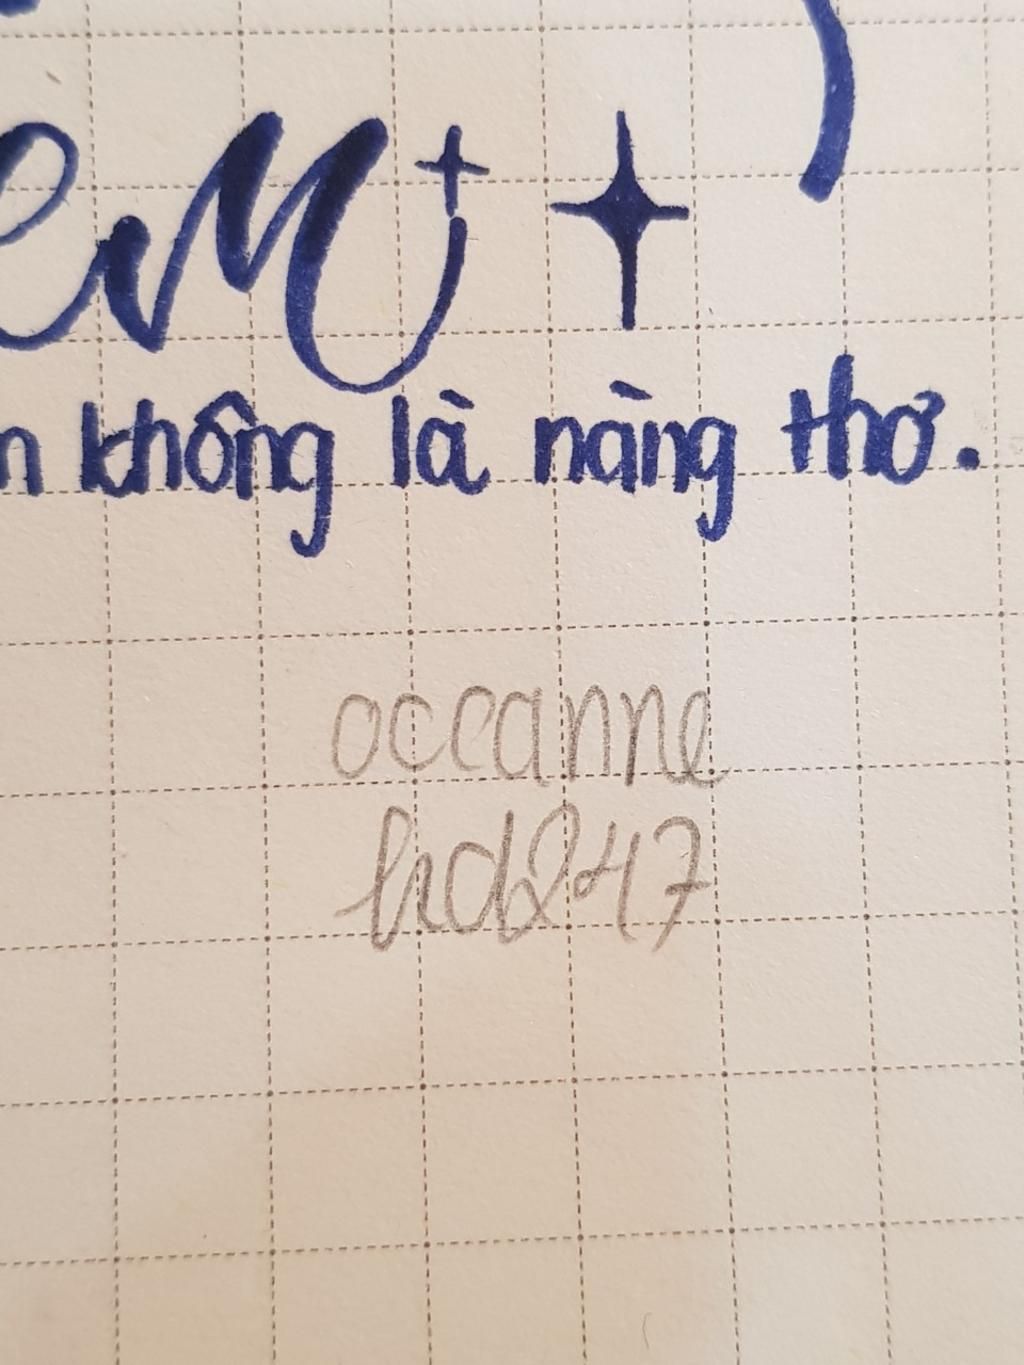 em
không là nàng thơ.
oceanne
hd247